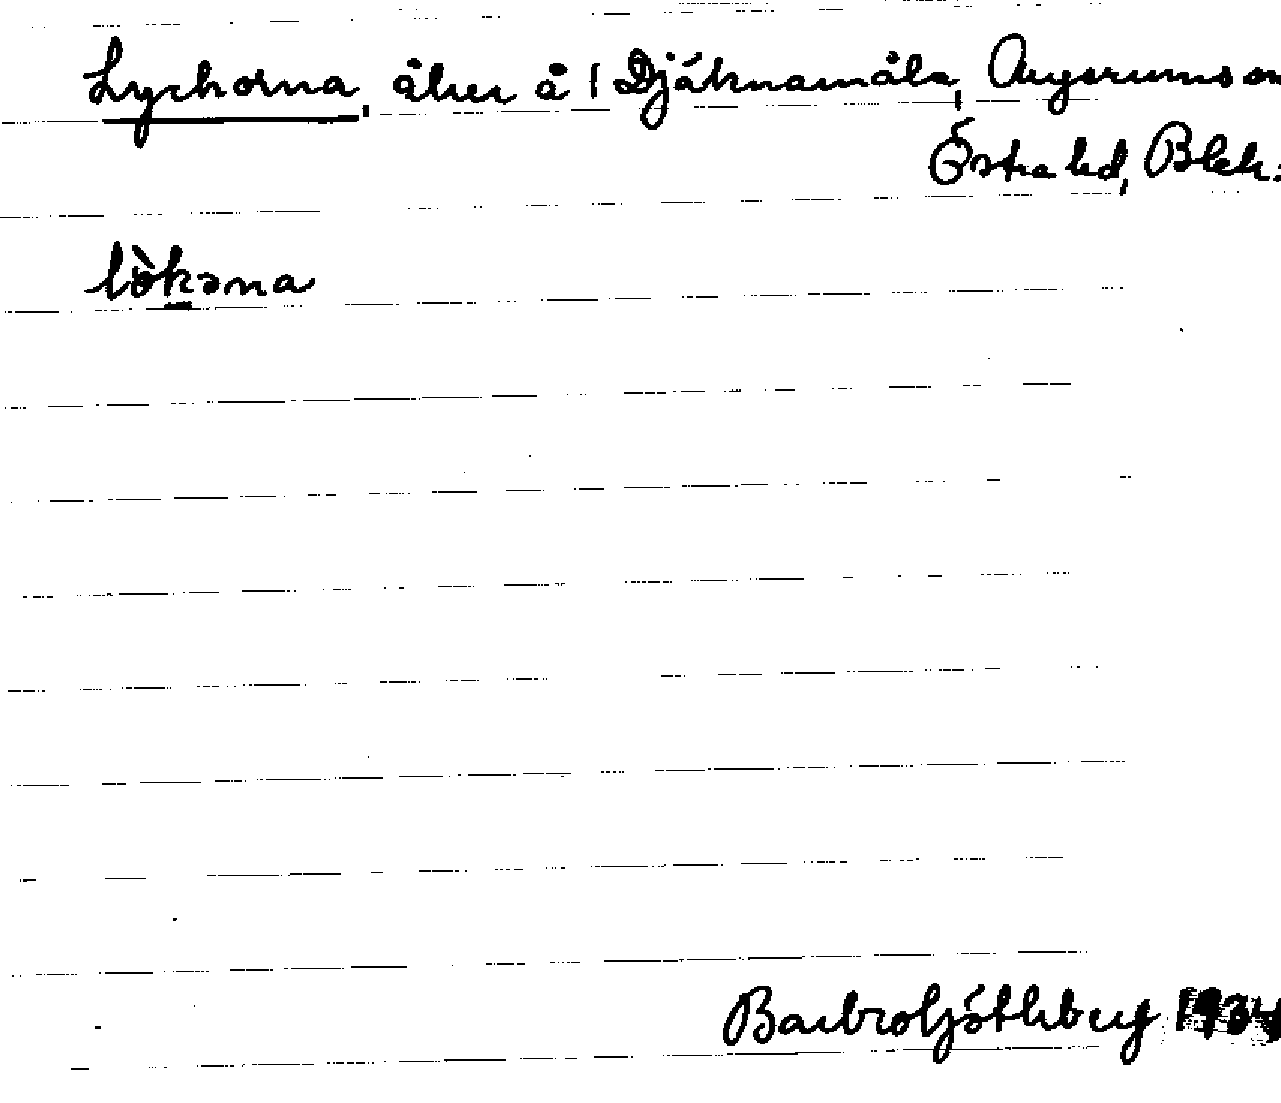 Lyckorna, åker å 1 Djäknamåla, Augerums sn
Östra hd, Blek.
lòkəna
Barbro Götlberg 1934